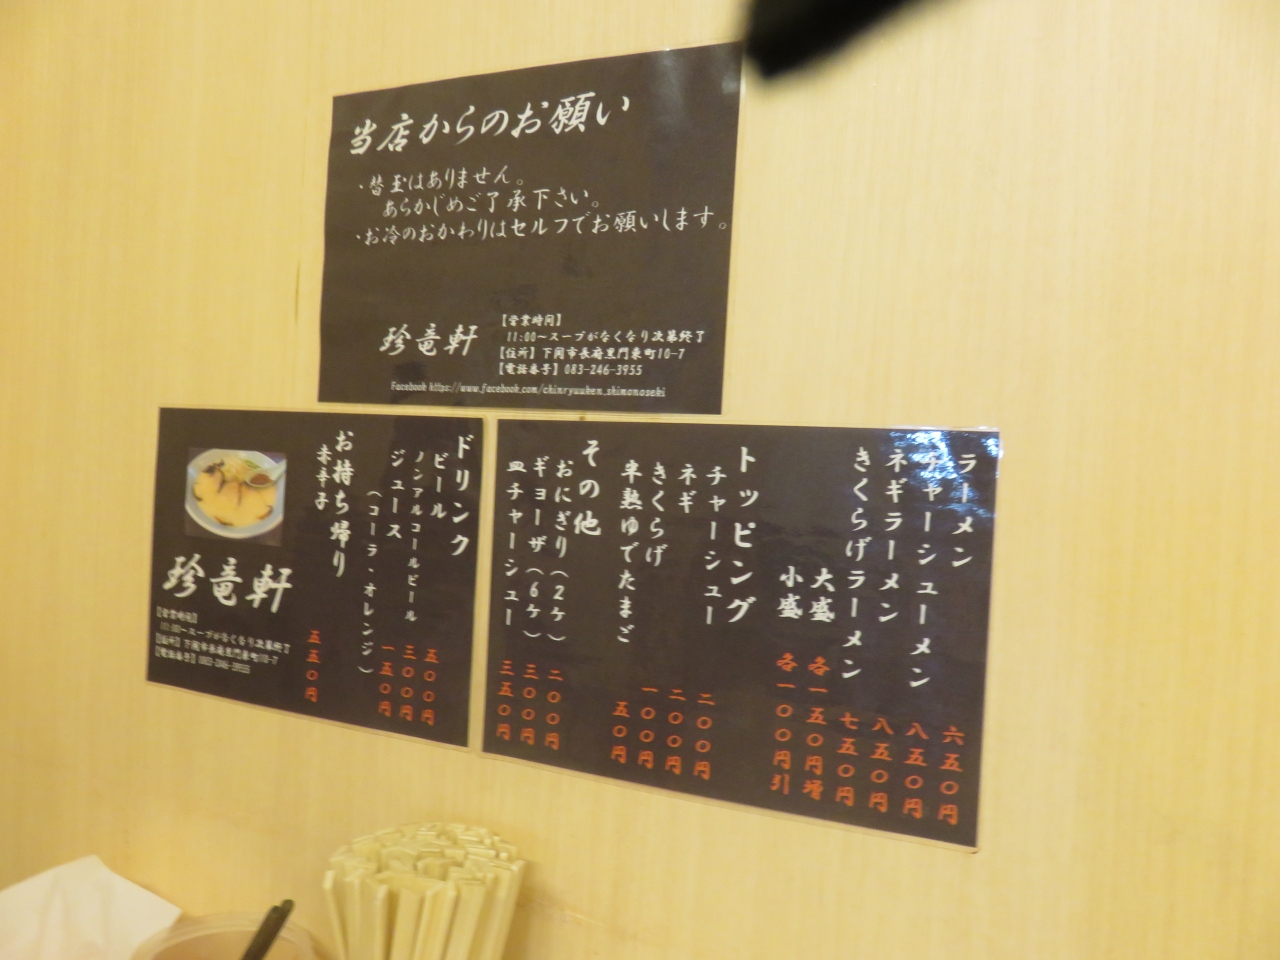 当店からのお願い
・替玉はありません。
あらかじめご了承下さい。
・お冷のおかわりはセルフでお願いします。
珍竜軒
【営業時間】
11:00〜スープがなくなり次第終了
【住所】下関市長府黒門東町10-7
【電話番号】083-246-3955
Facebook https://www.facebook.com/chinryuuken_shimonoseki
ラーメン 六五〇円
チャーシューメン 八五〇円
ネギラーメン 八五〇円
きくらげラーメン 七五〇円
大盛 各一五〇円増
小盛 各一〇〇円引
トッピング
チャーシュー 二〇〇円
ネギ 二〇〇円
きくらげ 一〇〇円
半熟ゆでたまご 五〇円
その他
おにぎり(2ケ) 二〇〇円
ギョーザ(6ケ) 三〇〇円
皿チャーシュー 三五〇円
ドリンク
ビール 五〇〇円
ノンアルコールビール 三〇〇円
ジュース 一五〇円
(コーラ・オレンジ)
お持ち帰り
赤辛子 五五〇円
珍竜軒
【営業時間】
11:00〜スープがなくなり次第終了
【住所】下関市長府黒門東町10-7
【電話番号】083-246-3955